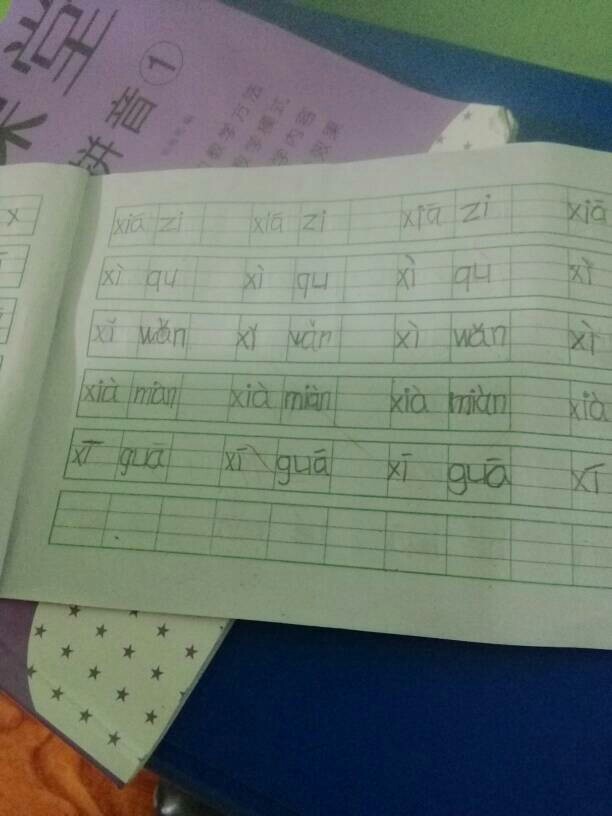 课堂
拼音①
教学方法
教学模式
学内容
效果
x
xiā zi xiā zi xiā zi xiā
xì qu xì qu xì qu xì
xǐ wǎn xǐ wǎn xì wǎn xì
xià miàn xià miàn xià miàn xià
xī guā xī guā xī guā xī